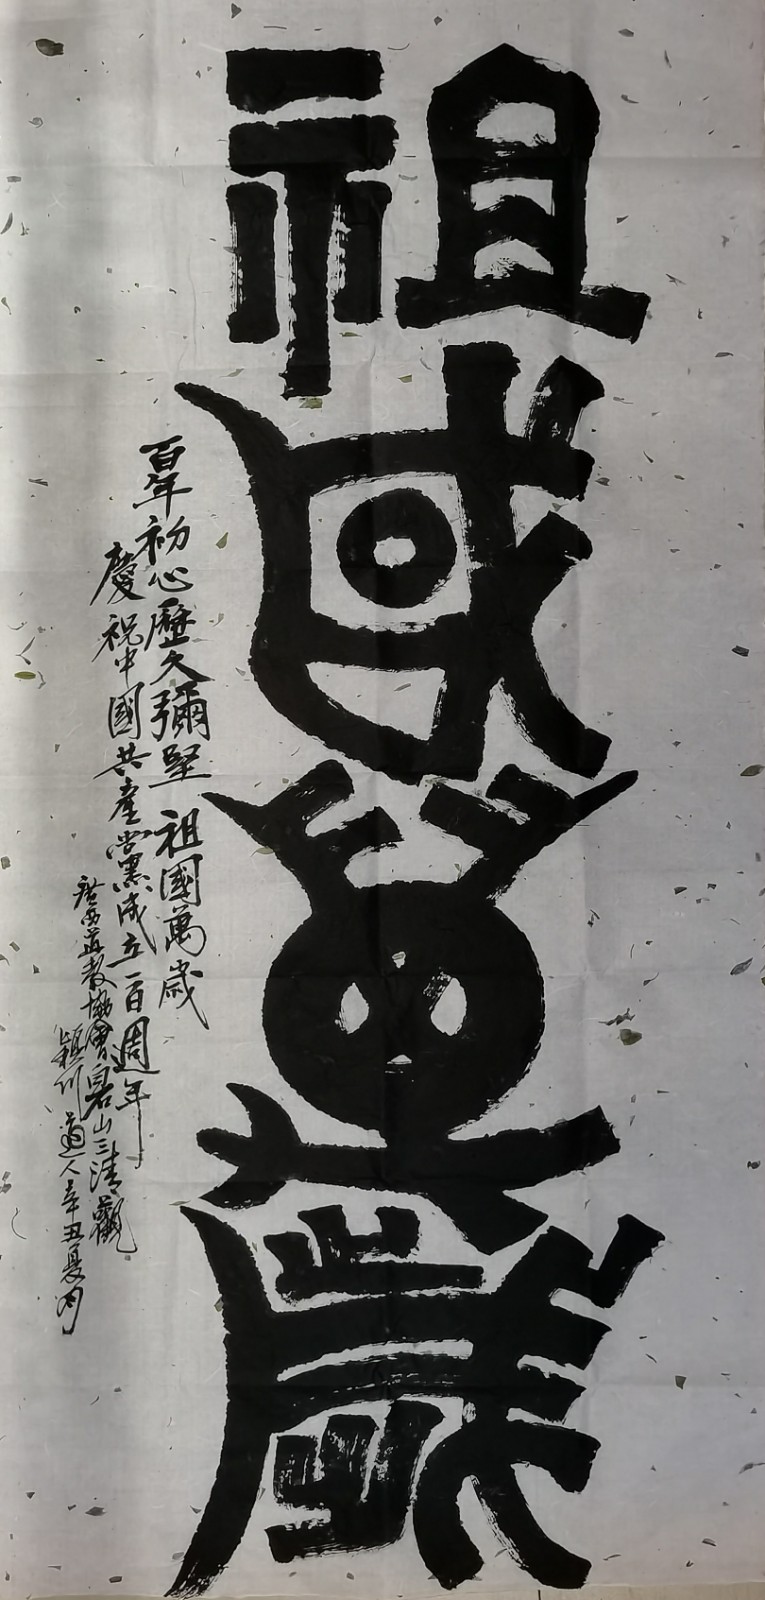 祖國萬歲
百年初心歷久彌堅 祖國萬歲
慶祝中國共產黨成立一百週年
广西道教協會白石山三清觀
穎川道人辛丑夏月